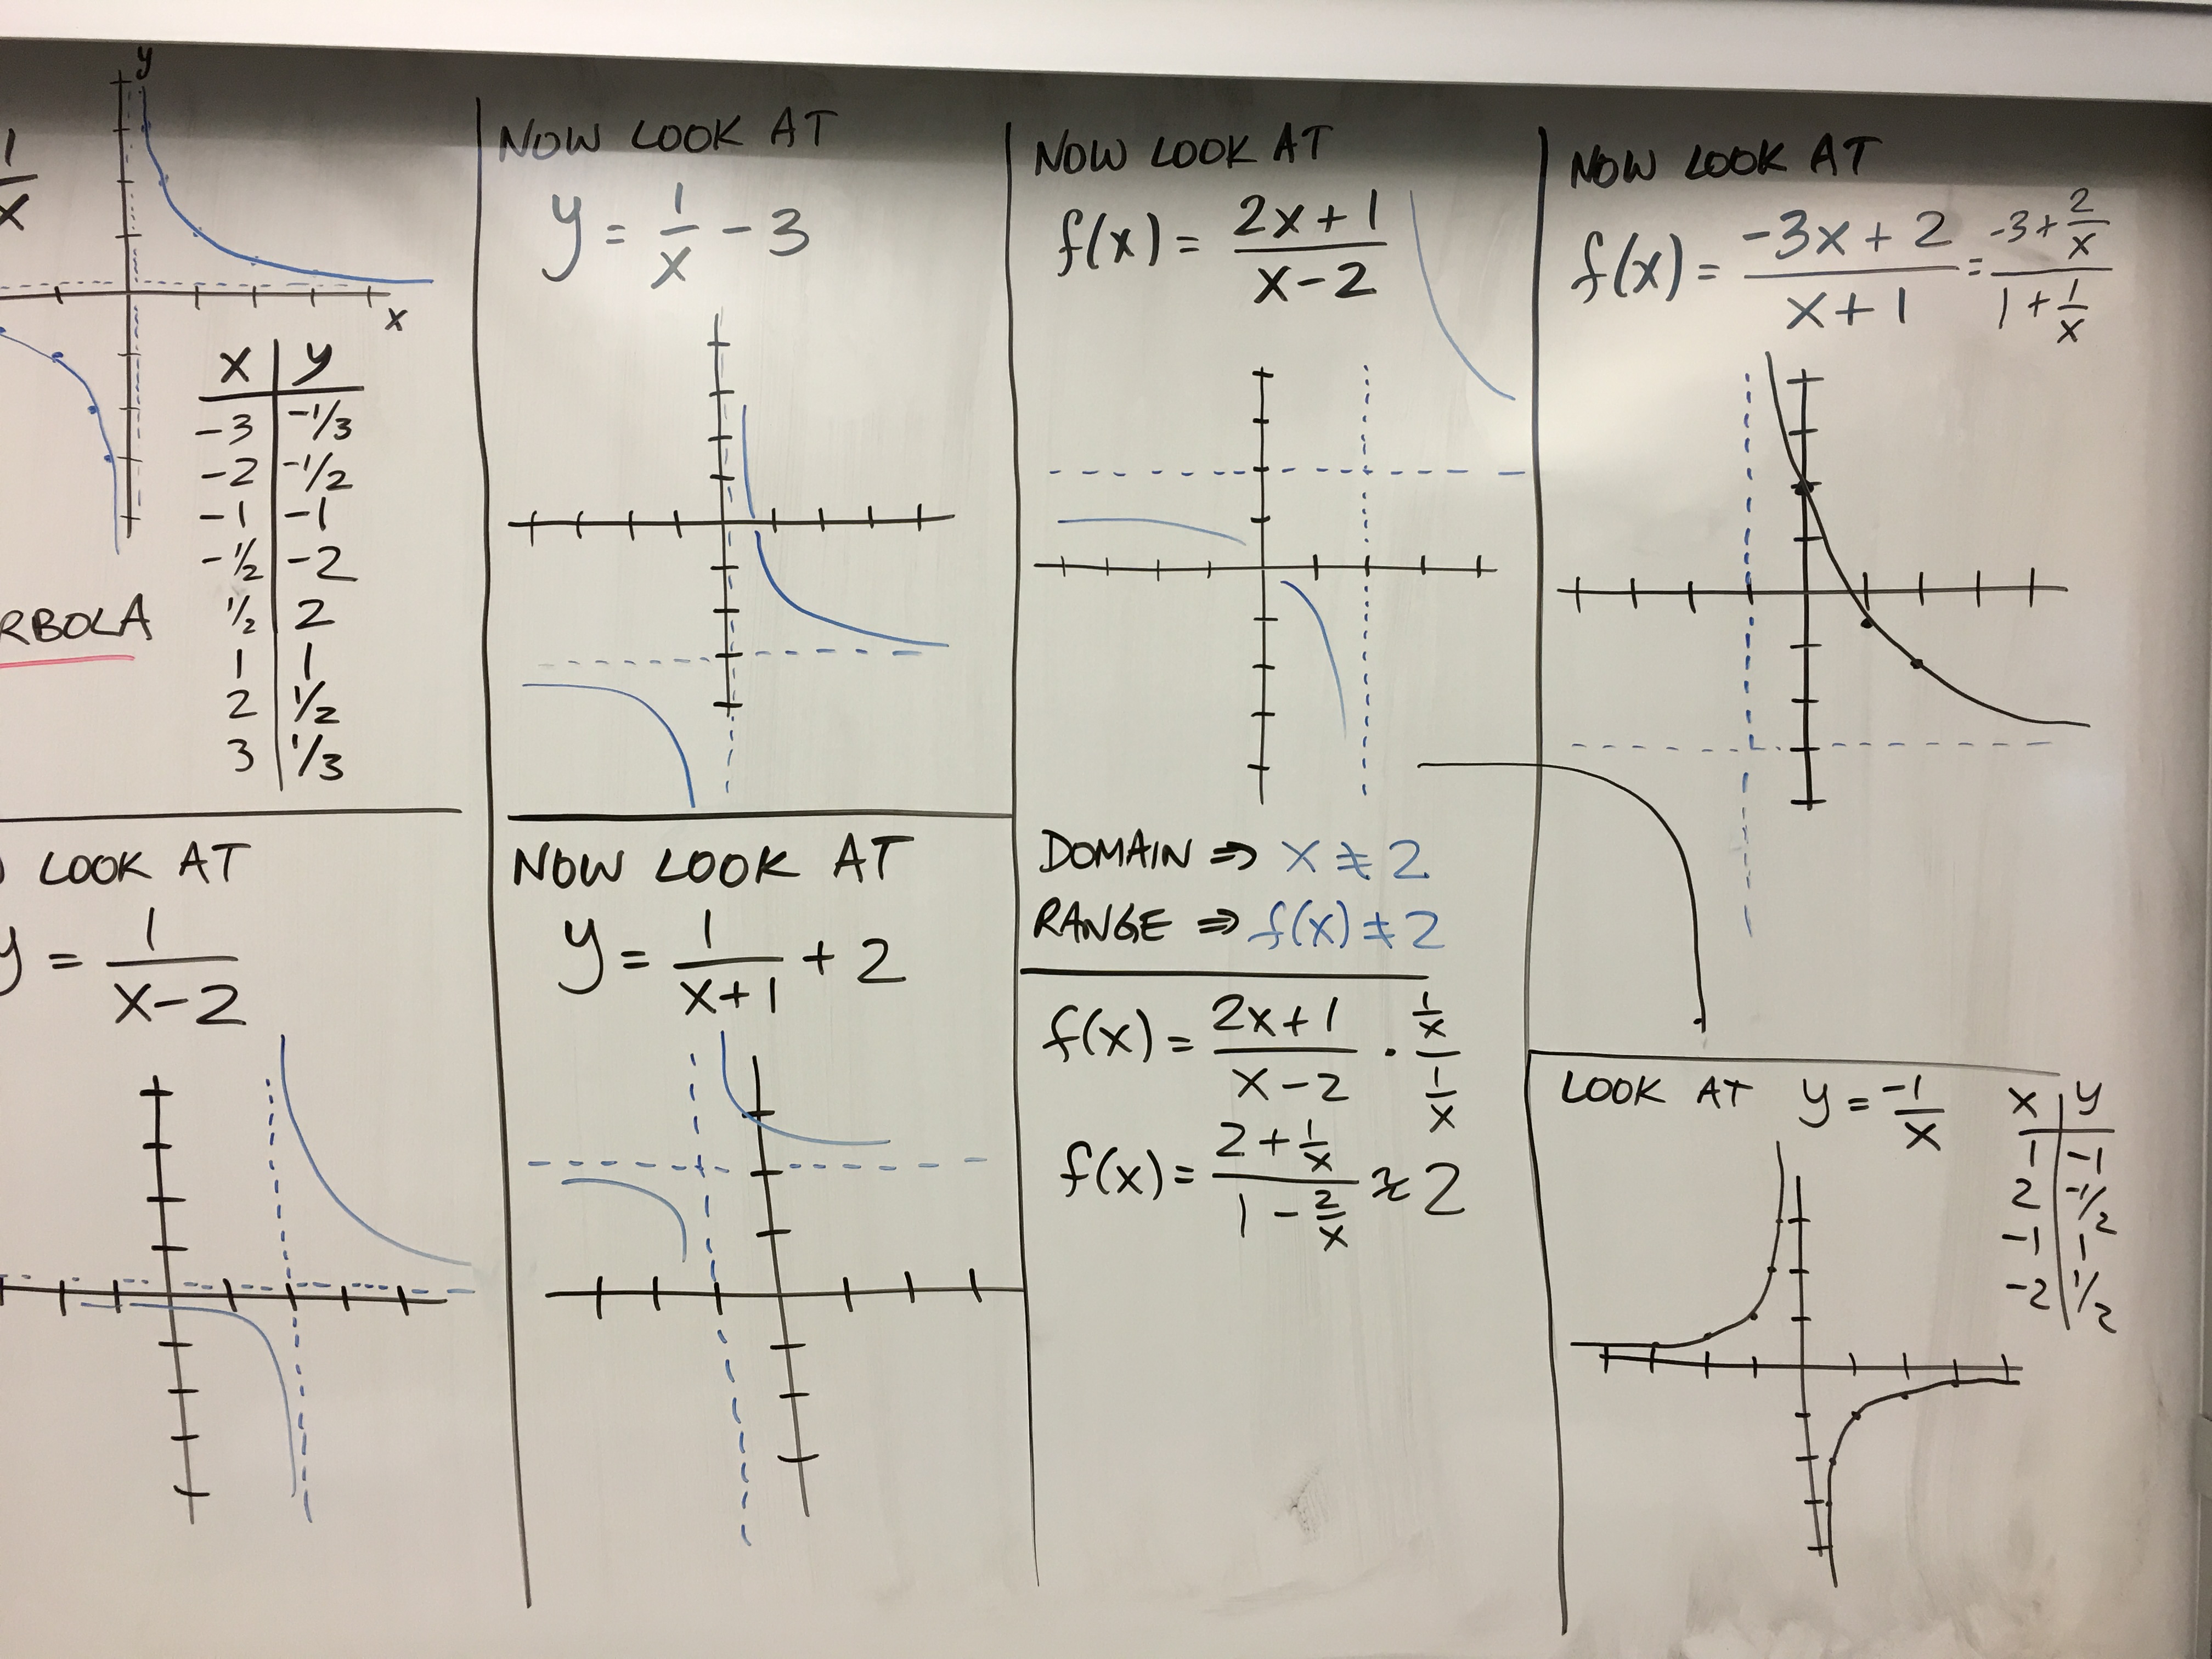 y
1/x
x
x | y
-3 | -1/3
-2 | -1/2
-1 | -1
-1/2 | -2
1/2 | 2
1 | 1
2 | 1/2
3 | 1/3
RBOLA
LOOK AT
y = 1/(x-2)
NOW LOOK AT
y = 1/x - 3
NOW LOOK AT
y = 1/(x+1) + 2
NOW LOOK AT
f(x) = (2x+1)/(x-2)
DOMAIN ⇒ x ≠ 2
RANGE ⇒ f(x) ≠ 2
f(x) = (2x+1)/(x-2) · (1/x)/(1/x)
f(x) = (2 + 1/x)/(1 - 2/x) ≈ 2
NOW LOOK AT
f(x) = (-3x+2)/(x+1) = (-3 + 2/x)/(1 + 1/x)
LOOK AT y = -1/x
x | y
1 | -1
2 | -1/2
-1 | 1
-2 | 1/2